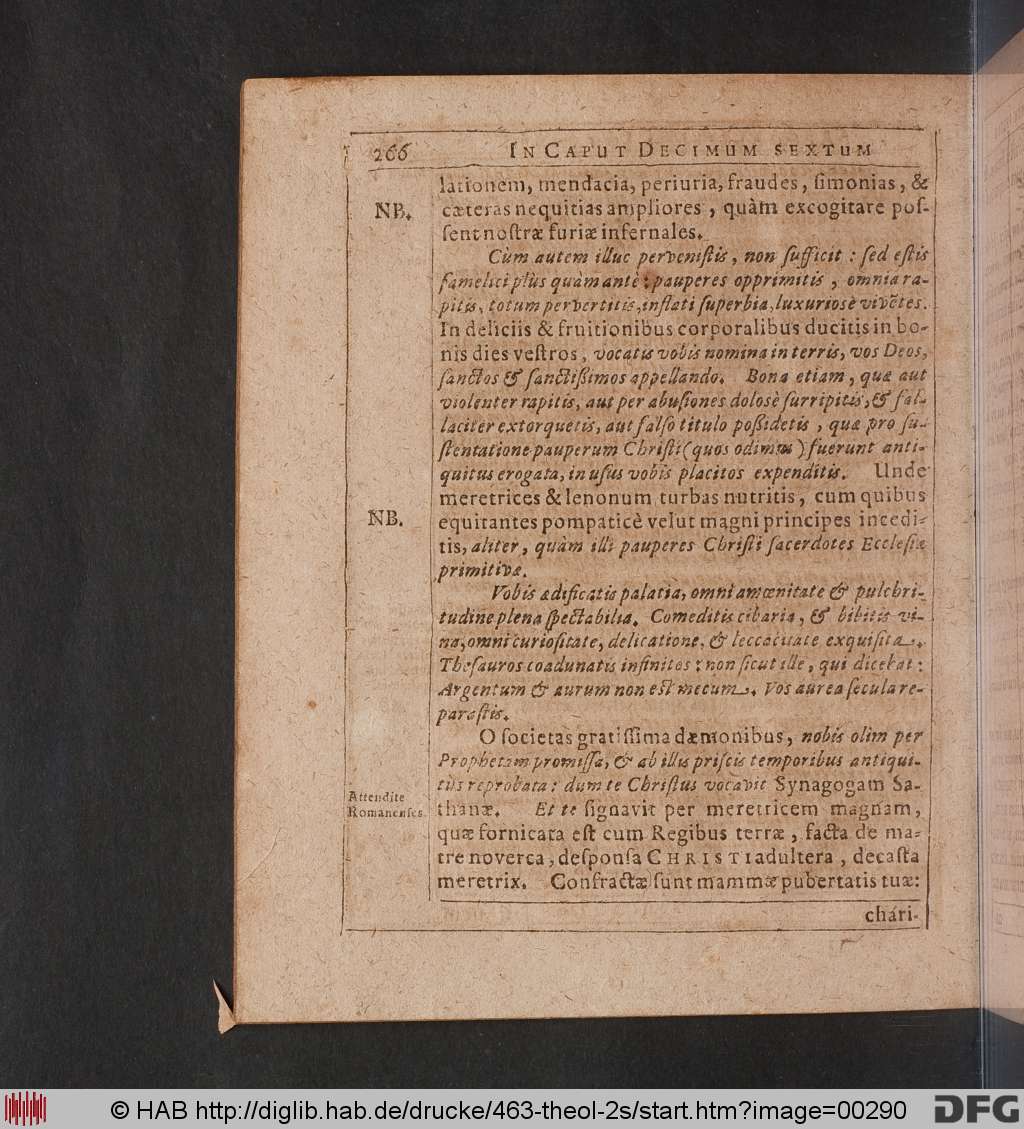 266 IN CAPUT DECIMUM SEXTUM
lationem, mendacia, periuria, fraudes, ſimonias, &
NB. cæteras nequitias ampliores, quàm excogitare poſ-
ſent noſtræ furiæ infernales.
Cùm autem illuc perveniſtis, non ſufficit: ſed eſtis
famelici plùs quàm antè: pauperes opprimitis, omnia ra-
pitis, totum pervertitis, inflati ſuperbia, luxuriosè vivẽtes.
In deliciis & fruitionibus corporalibus ducitis in bo-
nis dies veſtros, vocatis vobis nomina in terris, vos Deos,
ſanctos & ſanctißimos appellando. Bona etiam, quæ aut
violenter rapitis, aut per abuſiones dolosè ſurripitis, & fal-
laciter extorquetis, aut falſo titulo poßidetis, quæ pro ſu-
ſtentatione pauperum Chriſti (quos odimus) fuerunt anti-
quitus erogata, in uſus vobis placitos expenditis. Unde
meretrices & lenonum turbas nutritis, cum quibus
NB. equitantes pompaticè velut magni principes incedi-
tis, aliter, quàm illi pauperes Chriſti ſacerdotes Eccleſiæ
primitivæ.
Vobis ædificatis palatia, omni amœnitate & pulchri-
tudine plena ſpectabilia. Comeditis cibaria, & bibitis vi-
na, omni curioſitate, delicatione, & leccacitate exquiſita.
Theſauros coadunatis infinitos: non ſicut ille, qui dicebat:
Argentum & aurum non eſt mecum. Vos aurea ſecula re-
paraſtis.
O ſocietas gratiſſima dæmonibus, nobis olim per
Prophetam promiſſa, & ab illis priſcis temporibus antiqui-
tùs reprobata: dum te Chriſtus vocavit Synagogam Sa-
Attendite
Romanenſes.
thanæ. Et te ſignavit per meretricem magnam,
quæ fornicata eſt cum Regibus terræ, facta de ma-
tre noverca, deſponſa CHRISTI adultera, de caſta
meretrix. Confractæ ſunt mammæ pubertatis tuæ:
chári-
© HAB http://diglib.hab.de/drucke/463-theol-2s/start.htm?image=00290
DFG